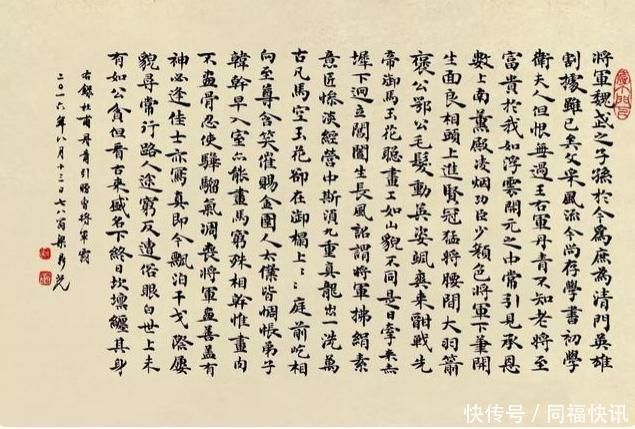 將軍魏武之子孫於今為庶為清門英雄
割據雖已矣文采風流今尚存學書初學
衛夫人但恨無過王右軍丹青不知老將至
富貴於我如浮雲開元之中常引見承恩
數上南薰殿凌烟功臣少顏色將軍下筆開
生面良相頭上進賢冠猛將腰間大羽箭
褒公鄂公毛髮動英姿颯爽來酣戰先
帝御馬玉花驄畫工如山貌不同是日牽來赤
墀下迥立閶闔生長風詔謂將軍拂絹素
意匠慘淡經營中斯須九重真龍出一洗萬
古凡馬空玉花卻在御榻上〻庭前屹相
向至尊含笑催賜金圉人太僕皆惆悵弟子
韓幹早入室亦能畫馬窮殊相幹惟畫肉
不畫骨忍使驊騮氣凋喪將軍畫善蓋有
神必逢佳士亦寫真即今飄泊干戈際屢
貌尋常行路人途窮反遭俗眼白世上未
有如公貧但看古來盛名下終日坎壈纏其身
右錄杜甫丹青引贈曹將軍霸
二〇一六年八月十三日七八翁梁
快传号／同福快讯